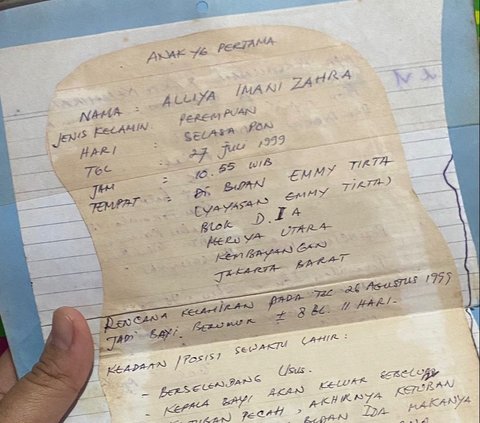 ANAK YG PERTAMA
NAMA : ALLIYA IMANI ZAHRA
JENIS KELAMIN : PEREMPUAN
HARI : SELASA PON
TGL : 27 Juli 1999
JAM : 10.55 WIB
TEMPAT : DI BIDAN EMMY TIRTA
(YAYASAN EMMY TIRTA)
BLOK D. I A
MERUYA UTARA
KEMBANGAN
JAKARTA BARAT
RENCANA KELAHIRAN PADA TGL 26 AGUSTUS 1999
JADI BAYI BERUMUR ± 8 BL. 11 HARI.
KEADAAN / POSISI SEWAKTU LAHIR :
- BERSELENDANG USUS.
- KEPALA BAYI AKAN KELUAR SEBELUM
KETUBAN PECAH, AKHIRNYA KETUBAN
BIDAN IDA MAKANYA